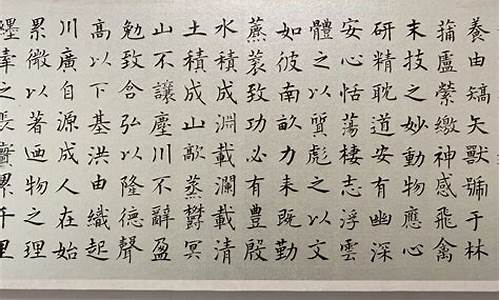 養由矯矢獸號于林
蒱盧縈繳神感飛禽
末技之妙動物應心
研精耽道安有幽深
安心恬蕩棲志浮雲
體之以質彪之以文
如彼南畝力耒既勤
藨蓘致功必有豊殷
水積成淵載瀾載清
土積成山歊蒸欝冥
山不讓塵川不辭盈
勉致含弘以隆德聲
高以下基洪由纖起
川廣自源成人在始
累微以著迺物之理
纆牽之長實累千里